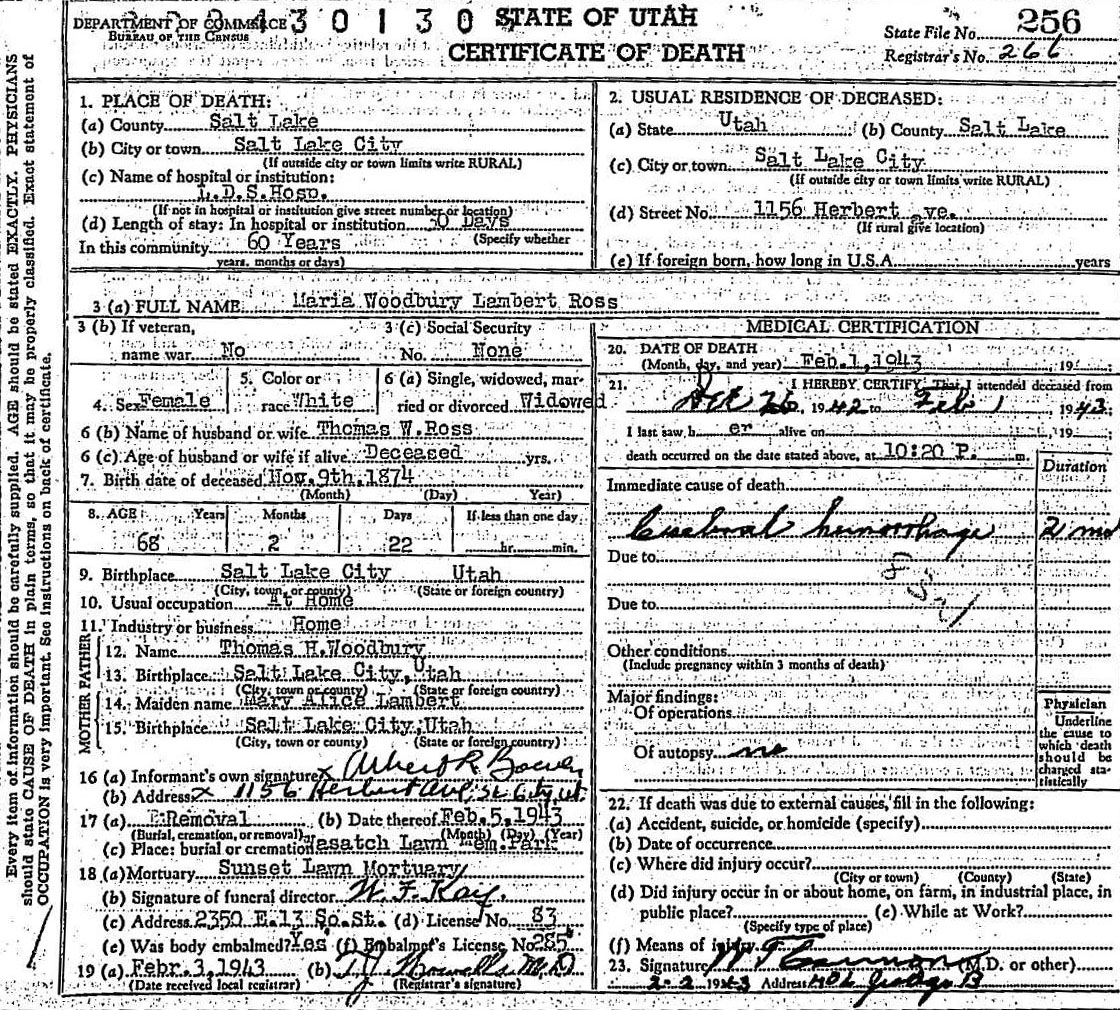 Every item of information should be carefully supplied. AGE should be stated EXACTLY. PHYSICIANS
should state CAUSE OF DEATH in plain terms, so that it may be properly classified. Exact statement of
OCCUPATION is very important. See instructions on back of certificate.
DEPARTMENT OF COMMERCE
BUREAU OF THE CENSUS
4 3 0 1 3 0
STATE OF UTAH
CERTIFICATE OF DEATH
State File No. 256
Registrar's No. 266
1. PLACE OF DEATH:
(a) County Salt Lake
(b) City or town Salt Lake City
(If outside city or town limits write RURAL)
(c) Name of hospital or institution:
L.D.S.Hosp.
(If not in hospital or institution give street number or location)
(d) Length of stay: In hospital or institution Days
(Specify whether
In this community 60 Years
years, months or days)
2. USUAL RESIDENCE OF DECEASED:
(a) State Utah (b) County Salt Lake
(c) City or town Salt Lake City
(If outside city or town limits write RURAL)
(d) Street No. 1156 Herbert ve.
(If rural give location)
(e) If foreign born, how long in U.S.A. years
3 (a) FULL NAME Maria Woodbury Lambert Ross
3 (b) If veteran, name war No
3 (c) Social Security No. None
4. Sex Female
5. Color or race White
6 (a) Single, widowed, married or divorced Widowed
6 (b) Name of husband or wife Thomas W.Ross
6 (c) Age of husband or wife if alive Deceased yrs.
7. Birth date of deceased Nov. 9th, 1874
(Month) (Day) Year)
8. AGE Years Months Days If less than one day
68 2 22 hr. min.
9. Birthplace Salt Lake City Utah
(City, town, or county) (State or foreign country)
10. Usual occupation At Home
11. Industry or business Home
FATHER
12. Name Thomas H.Woodbury
13. Birthplace Salt Lake City, Utah
(City, town or county) (State or foreign country)
MOTHER
14. Maiden name Mary Alice Lambert
15. Birthplace Salt Lake City, Utah
(City, town or county) (State or foreign country)
16 (a) Informant's own signature x Albert R Bowen
(b) Address x 1156 Herbert Ave, SL City Ut.
17 (a) Removal (b) Date thereof Feb. 5, 1943
(Burial, cremation, or removal) (Month) (Day) (Year)
(c) Place: burial or cremation Wasatch Lawn Mem.Park
18 (a) Mortuary Sunset Lawn Mortuary
(b) Signature of funeral director W. F. Kay
(c) Address 2350 E.13 So.St. (d) License No. 83
(e) Was body embalmed? Yes (f) Embalmer's License No. 285
19 (a) Febr. 3, 1943 (b) T.J. Howells M.D
(Date received local registrar) (Registrar's signature)
MEDICAL CERTIFICATION
20. DATE OF DEATH
(Month, day, and year) Feb. 1, 1943 19
21. I HEREBY CERTIFY That I attended deceased from
Dec 26, 1942 to Feb 1 1943
I last saw h er alive on , 19
death occurred on the date stated above, at 10:20 P. m.
Duration
Immediate cause of death
Cerebral hemorrhage 2 mo
Due to
Due to
Other conditions
(Include pregnancy within 3 months of death)
Major findings:
Of operations
Of autopsy no
Physician
Underline
the cause to
which death
should be
charged sta-
tistically
22. If death was due to external causes, fill in the following:
(a) Accident, suicide, or homicide (specify)
(b) Date of occurrence
(c) Where did injury occur?
(City or town) (County) (State)
(d) Did injury occur in or about home, on farm, in industrial place, in
public place? (e) While at Work?
(Specify type of place)
(f) Means of injury
23. Signature W T Cannon (M.D. or other)
2-2 1943 Address